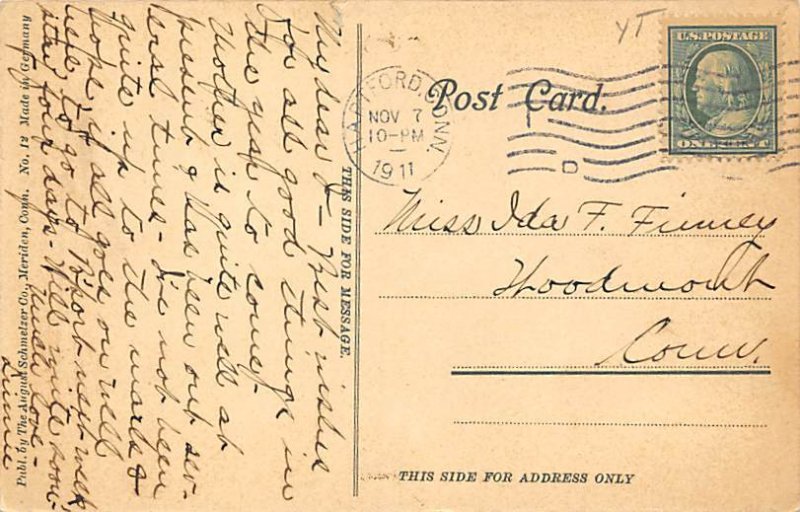 My dear I — Best wishes
for all good things in
the year to come.
Mother is quite well at
present & has been out sev-
eral times - I've not been
quite up to the mark &
hope, if all goes on well
here to go to B'port next week
stay four days - Will write soon -
much love -
THIS SIDE FOR MESSAGE.
Publ. by The August Schmelzer Co., Meriden, Conn. No. 12 Made in Germany
Post Card.
HARTFORD, CONN.
NOV 7
10-PM
1911
D
YT
U.S. POSTAGE
ONE CENT
Miss Ida F. Finney
Woodmont
Conn.
THIS SIDE FOR ADDRESS ONLY